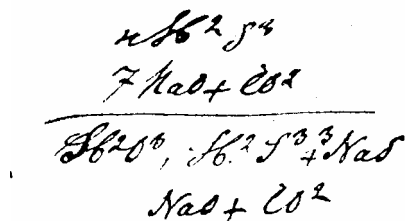 n Sb² S³
7 NaO + CO²
Sb²O³, Sb² S³ + ³NaS
NaO + CO²